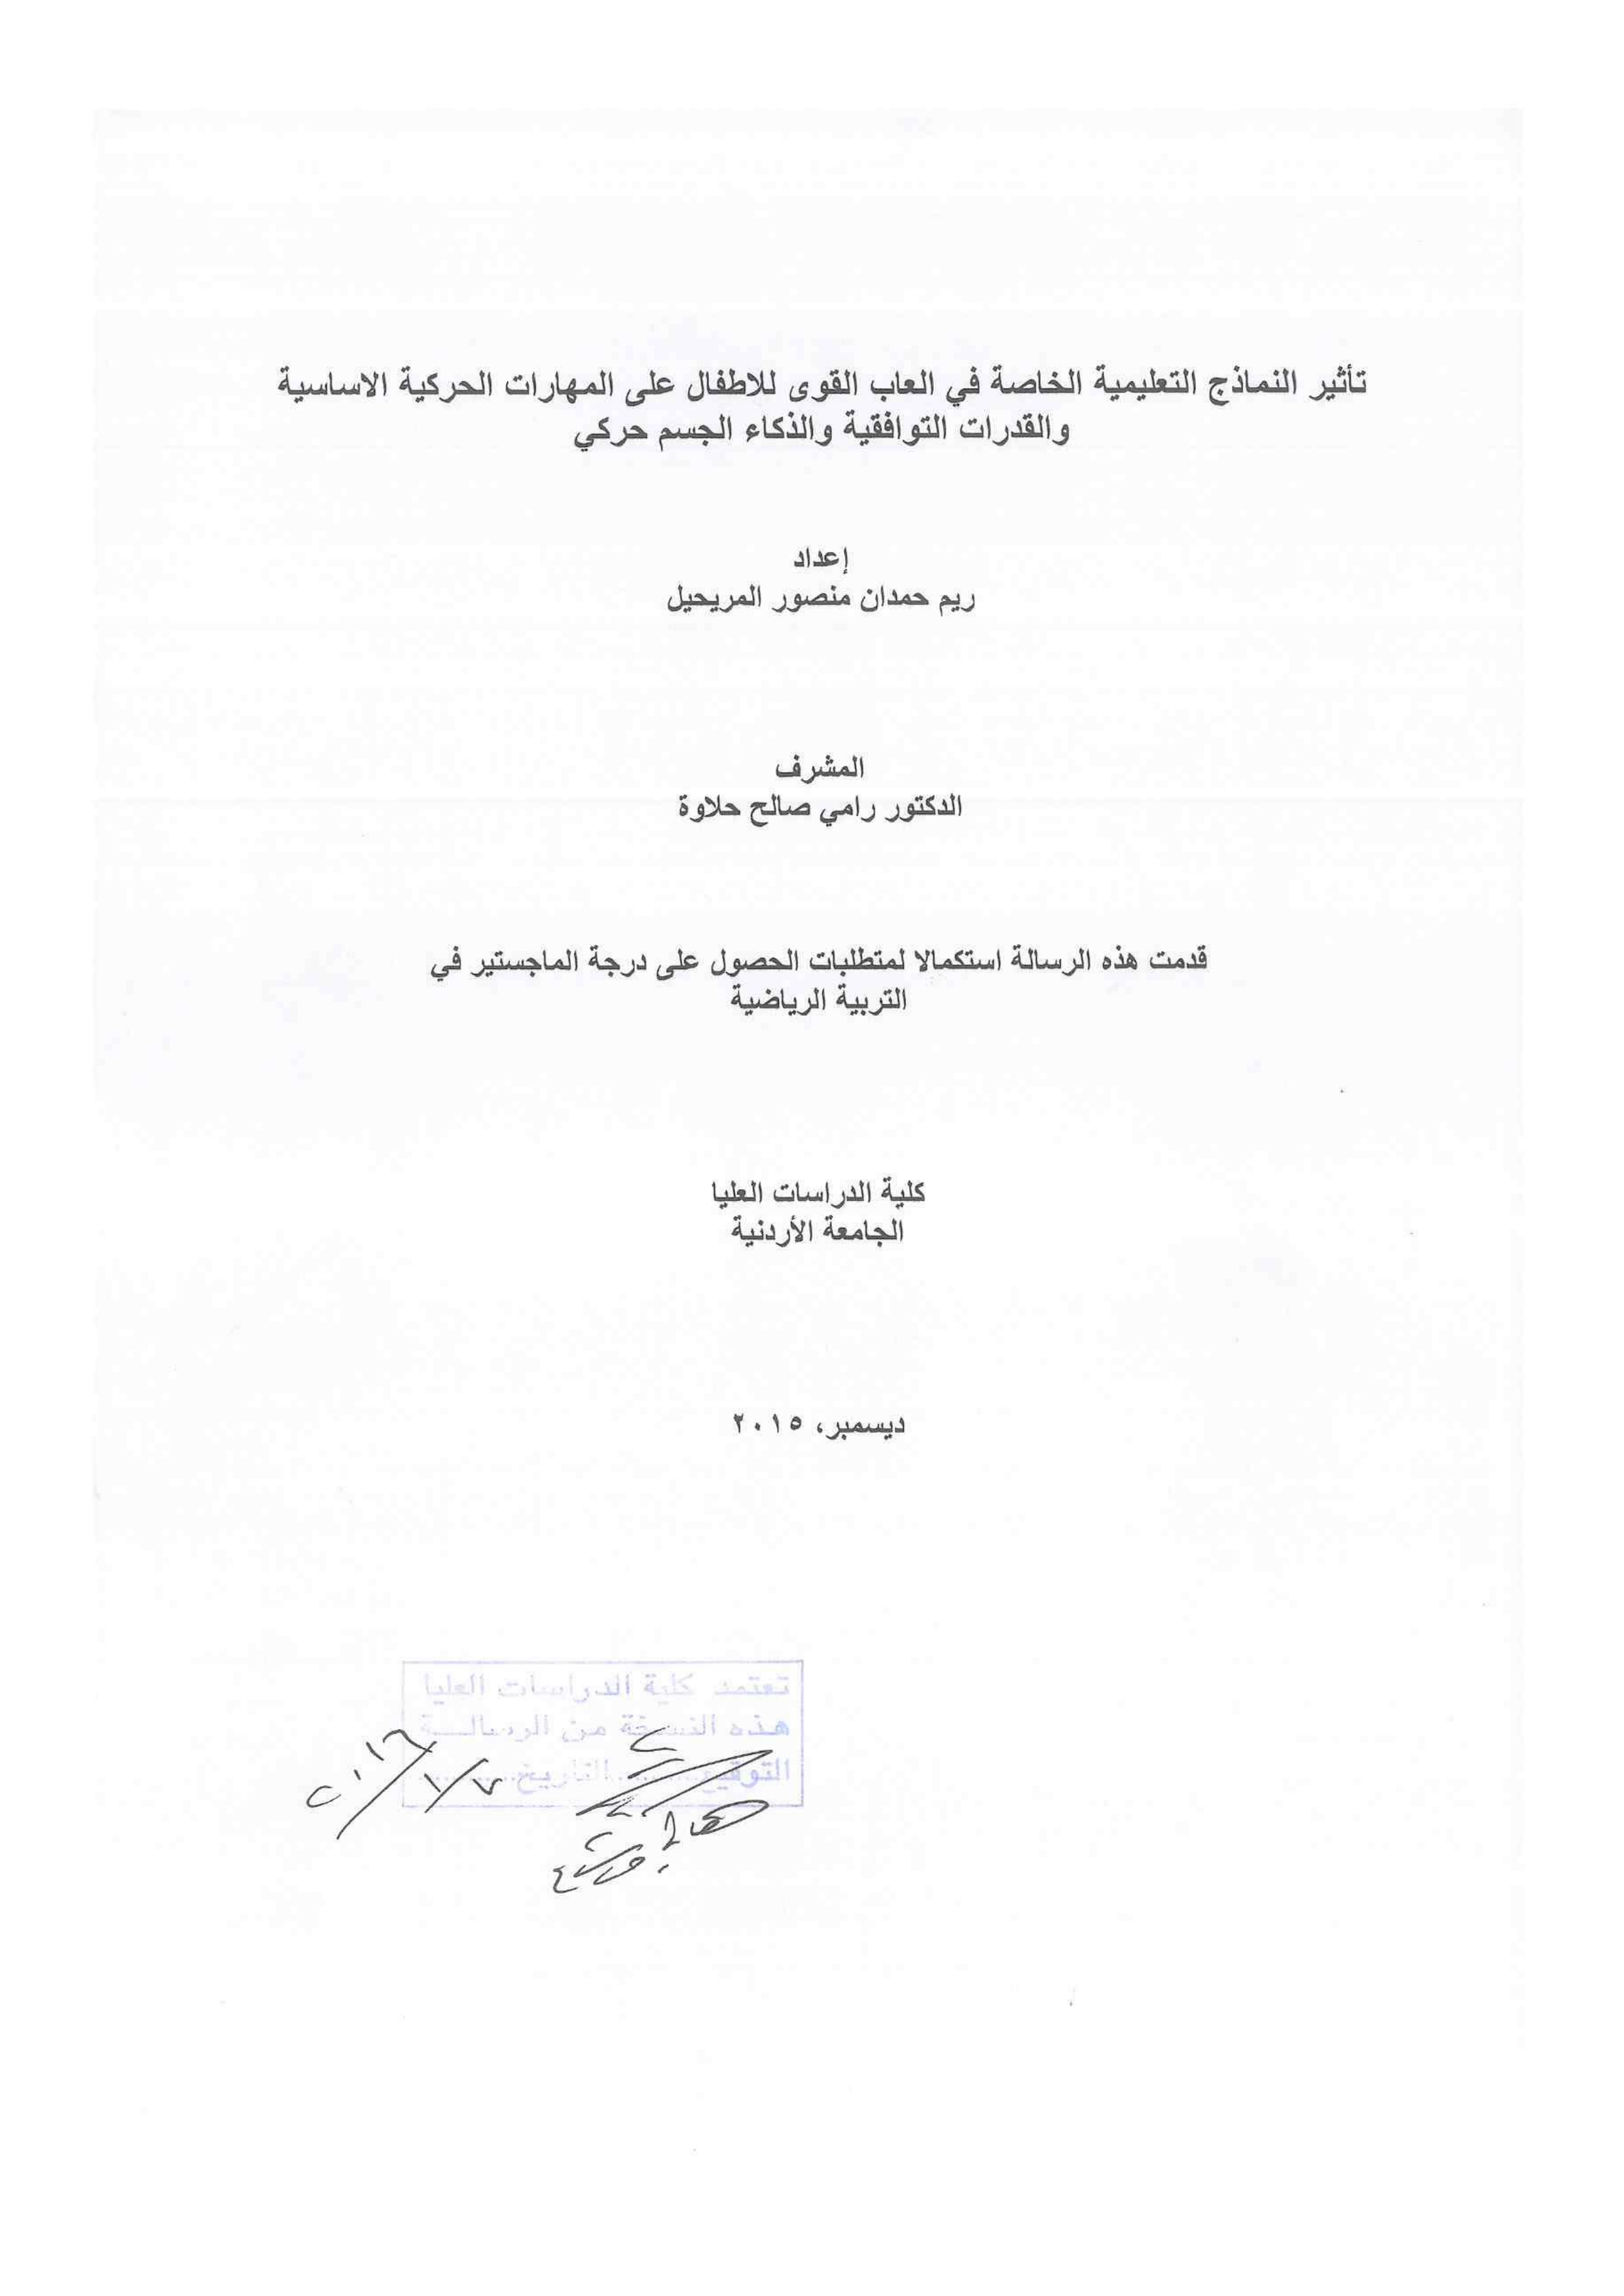 تأثير النماذج التعليمية الخاصة في العاب القوى للاطفال على المهارات الحركية الاساسية
والقدرات التوافقية والذكاء الجسم حركي
إعداد
ريم حمدان منصور المريحيل
المشرف
الدكتور رامي صالح حلاوة
قدمت هذه الرسالة استكمالا لمتطلبات الحصول على درجة الماجستير في
التربية الرياضية
كلية الدراسات العليا
الجامعة الأردنية
ديسمبر، ٢٠١٥
تعتمد كلية الدراسات العليا
هذه النسخة من الرسالـــة
التوقيع.........التاريخ..........
٢٠١٦/١/٧